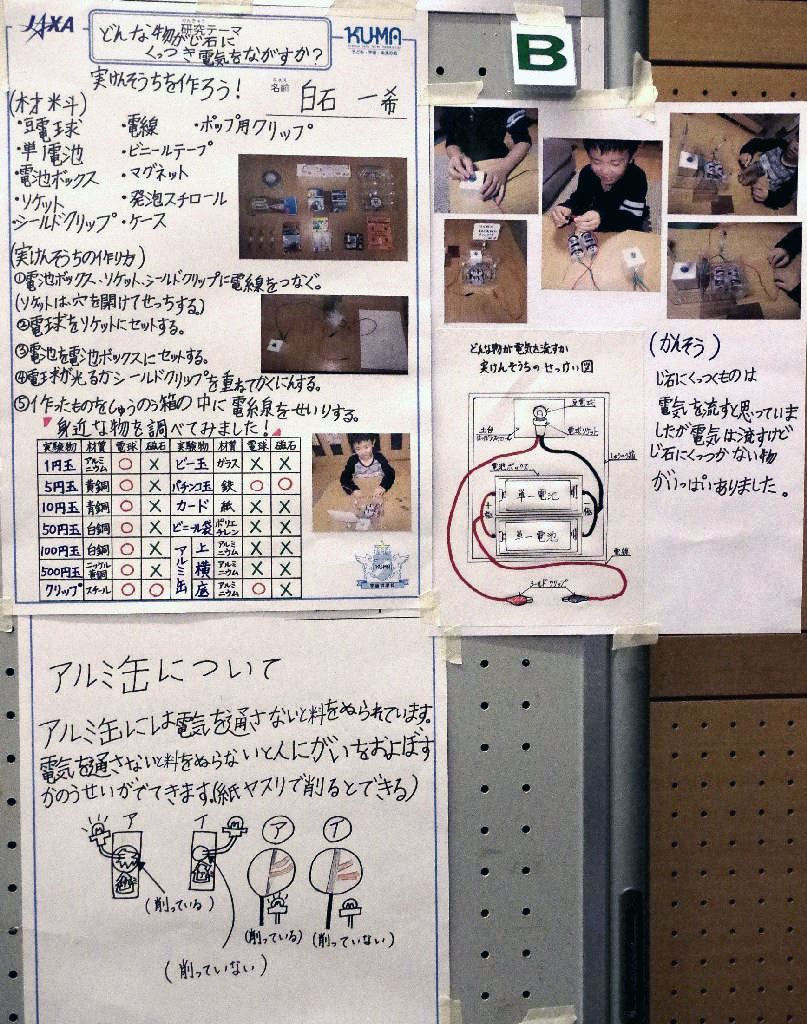 JAXA
研究テーマ
どんな物がじ石に
くっつき電気をながすか?
KUMA
B
実けんそうちを作ろう!
名前 白石 一希
(材料)
・豆電球 ・電線 ・ポップ用クリップ
・単1電池 ・ビニールテープ
・電池ボックス ・マグネット
・ソケット ・発泡スチロール
・シールドクリップ ・ケース
(実けんそうちの作り方)
①電池ボックス、ソケット、シールドクリップに電線をつなぐ。
(ソケットは穴を開けてせっちする)
②電球をソケットにセットする。
③電池を電池ボックスにセットする。
④電球が光るかシールドクリップを重ねてかくにんする。
⑤イ作ったものをしゅうのう箱の中に電線をせいりする。
身近な物を調べてみました!
実験物 材質 電球 磁石 実験物 材質 電球 磁石
1円玉 アルミニウム ○ × ビー玉 ガラス × ×
5円玉 黄銅 ○ × パチンコ玉 鉄 ○ ○
10円玉 青銅 ○ × カード 紙 × ×
50円玉 白銅 ○ × ビニール袋 ポリエチレン × ×
100円玉 白銅 ○ × アルミ缶 上 アルミニウム × ×
500円玉 ニッケル黄銅 ○ × 横 アルミニウム × ×
クリップ スチール ○ ○ 底 アルミニウム ○ ×
KUMA
どんな物が電気を流すか
実けんそうちのせっけい図
豆電球
電球ソケット
土台
電池ボックス
単一電池
単一電池
電線
シールドクリップ
(かんそう)
じ石にくっつくものは
電気を流すと思っていま
したが電気は流すけど
じ石にくっつかない物
がいっぱいありました。
アルミ缶について
アルミ缶には電気を通さないと料をぬられています。
電気を通さないと料をぬらないと人にがいをおよぼす
かのうせいがでてきます。(紙ヤスリで削るとできる)
ア イ ア イ
(削っている) (削っている) (削っていない)
(削っていない)